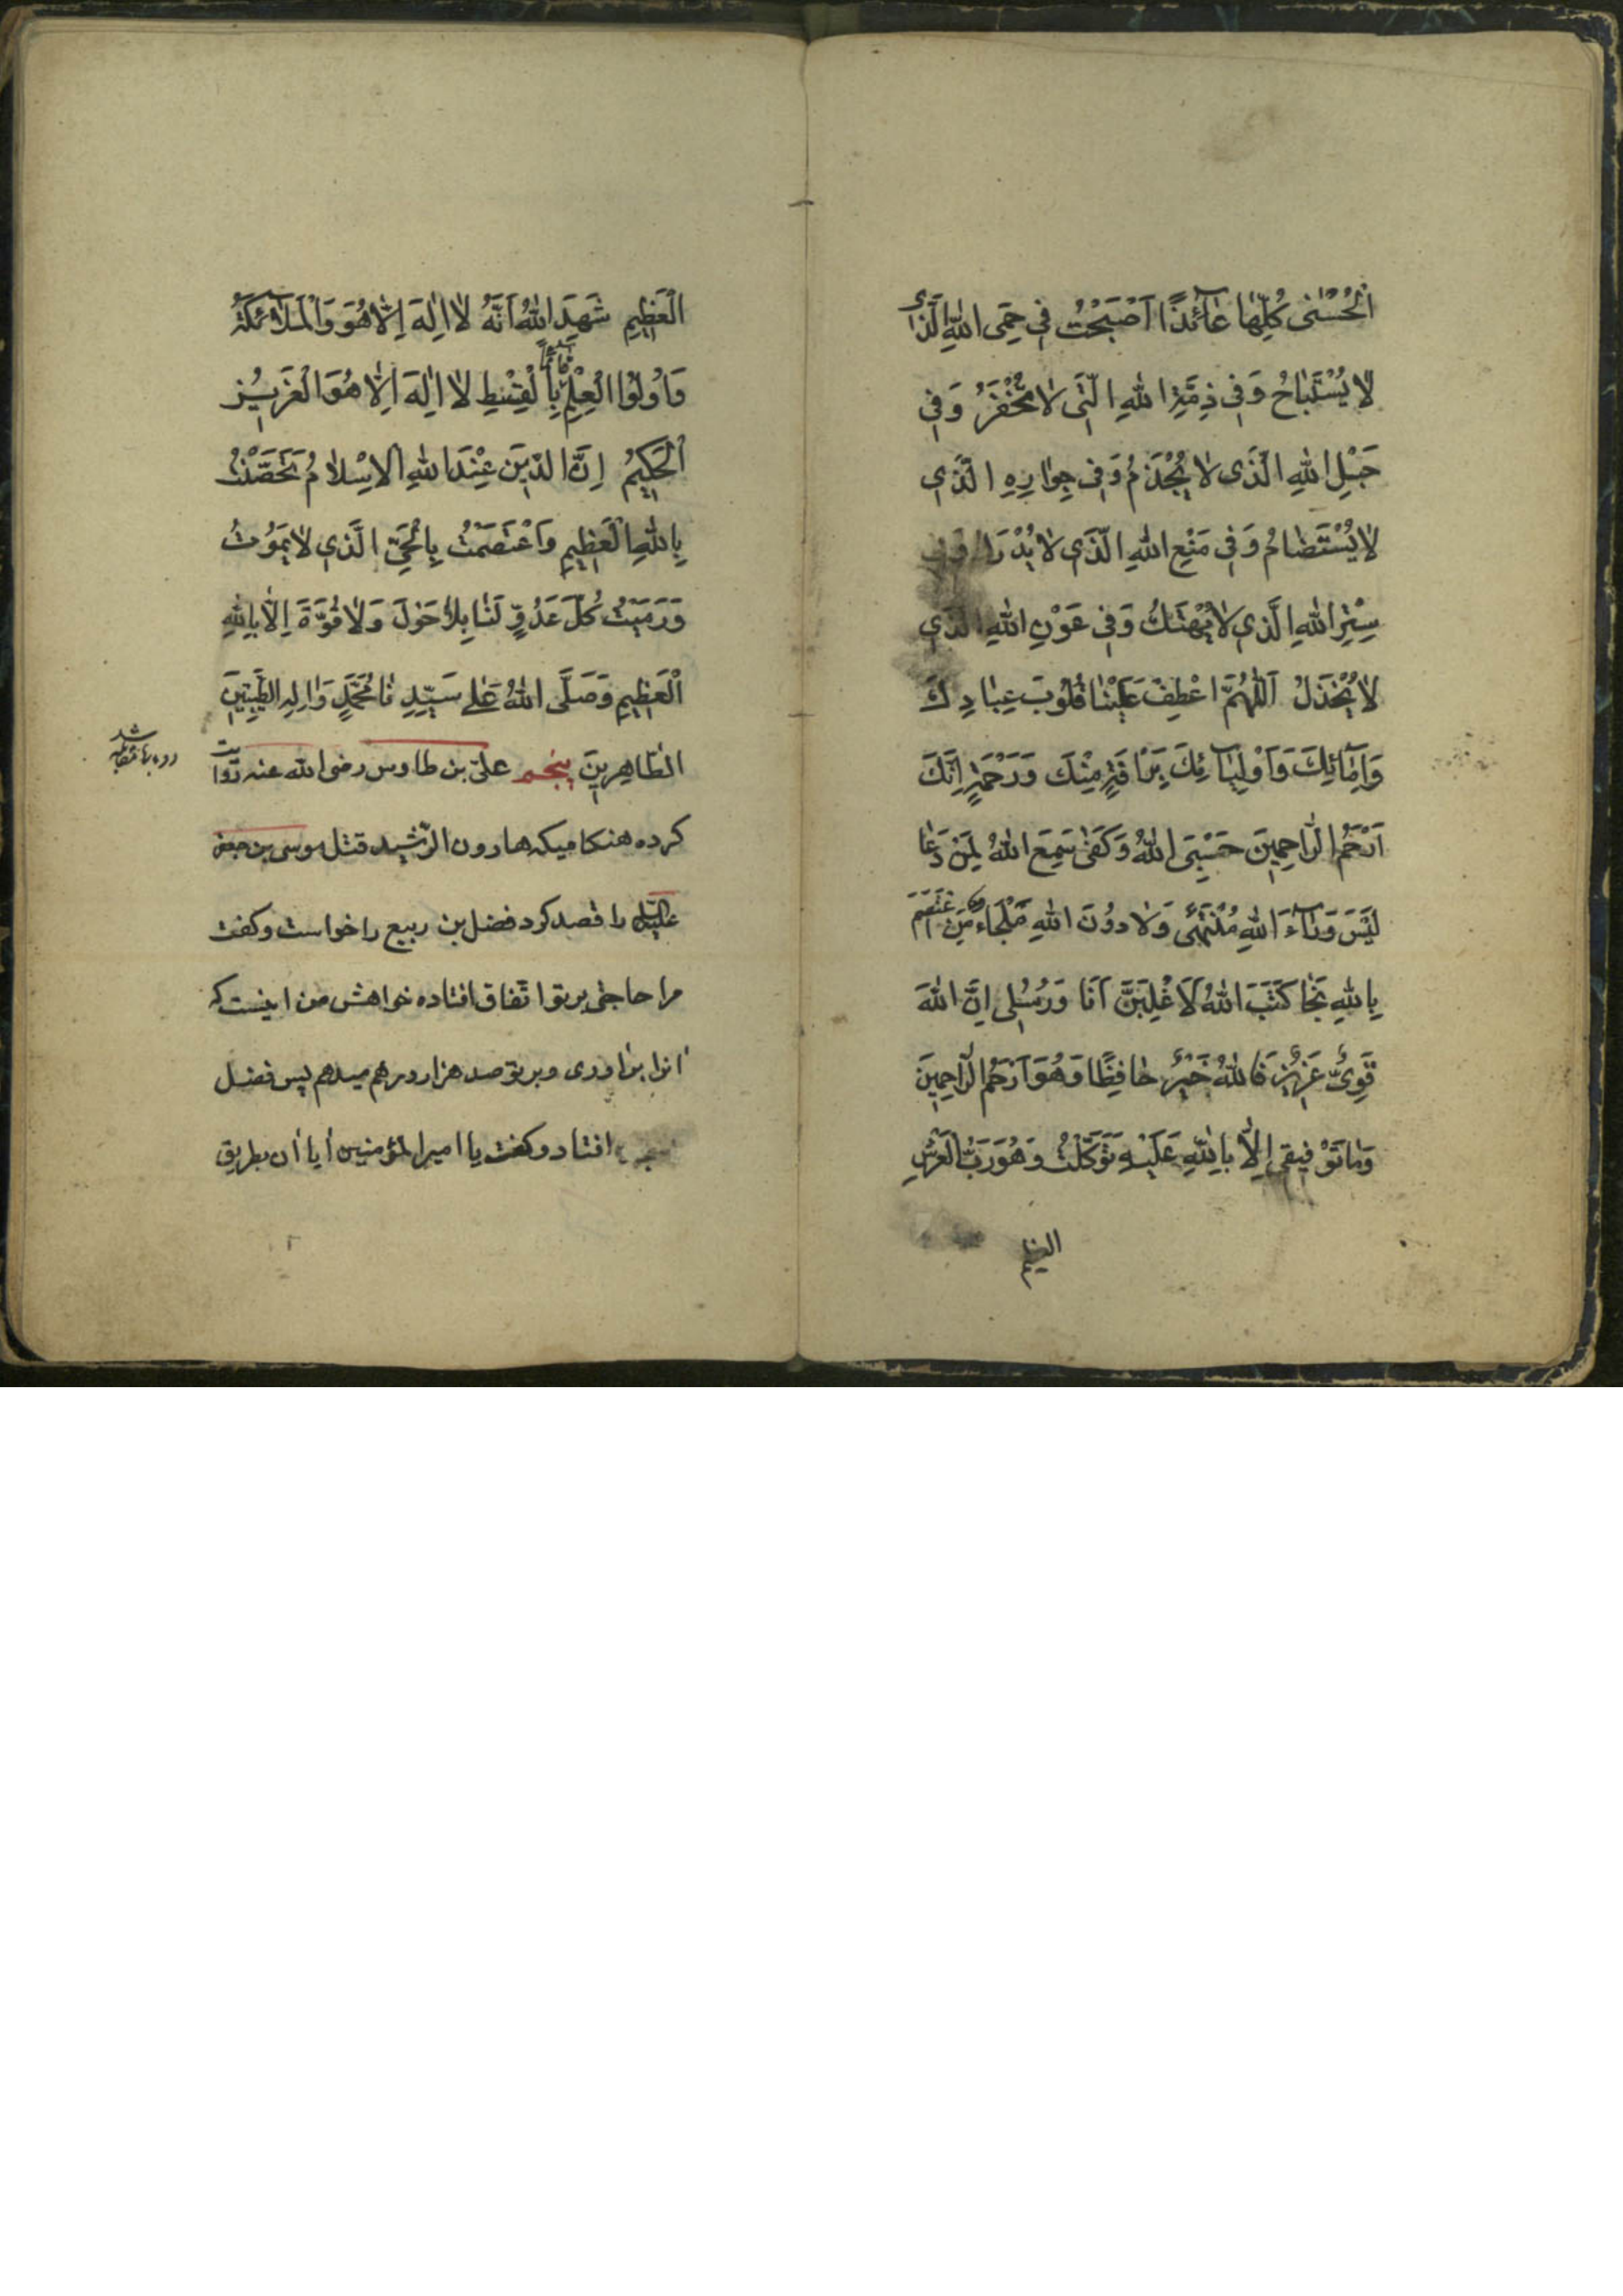 الْحُسْنٰى كُلِّهٰا عٰآئِذًا اَصْبَحْتُ فِي حِمَى اللهِ الَّذي
لٰا يُسْتَبٰاحُ وَفِي ذِمَّةِ اللهِ الَّتي لٰا تُخْفَرُ وَفِي
حَبْلِ اللهِ الَّذي لٰا يُجْذَمُ وَفِي جِوٰارِهِ الَّذي
لٰا يُسْتَضٰامُ وَفِي مَنْعِ اللهِ الَّذي لٰا يُدْرَكُ وَفِي
سِتْرِ اللهِ الَّذي لٰا يُهْتَكُ وَفِي عَوْنِ اللهِ الَّذي
لٰا يُخْذَلُ اَللّٰهُمَّ اعْطِفْ عَلَيْنٰا قُلُوبَ عِبٰادِكَ
وَاِمٰآئِكَ وَاَوْلِيٰآئِكَ بِرَاْفَةٍ مِنْكَ وَرَحْمَةٍ اِنَّكَ
اَرْحَمُ الرّٰاحِمِينَ حَسْبِيَ اللهُ وَكَفٰى سَمِعَ اللهُ لِمَنْ دَعٰا
لَيْسَ وَرٰآءَ اللهِ مُنْتَهًى وَلٰا دُونَ اللهِ مَلْجَاءٌ مَنِ اعْتَصَمَ
بِاللهِ نَجٰا كَتَبَ اللهُ لَاَغْلِبَنَّ اَنَا وَرُسُلي اِنَّ اللهَ
قَوِيٌّ عَزِيزٌ فَاللهُ خَيْرٌ حٰافِظًا وَهُوَ اَرْحَمُ الرّٰاحِمِينَ
وَمٰا تَوْفيقي اِلّٰا بِاللهِ عَلَيْهِ تَوَكَّلْتُ وَهُوَ رَبُّ الْعَرْشِ
العظيم
الْعَظِيمِ شَهِدَ اللهُ اَنَّهُ لٰا اِلٰهَ اِلّٰا هُوَ وَالْمَلٰآئِكَةُ
وَاُولُوا الْعِلْمِ قٰآئِمًا بِالْقِسْطِ لٰا اِلٰهَ اِلّٰا هُوَ الْعَزِيزُ
الْحَكِيمُ اِنَّ الدّينَ عِنْدَ اللهِ الْاِسْلٰامُ تَحَصَّنْتُ
بِاللهِ الْعَظِيمِ وَاعْتَصَمْتُ بِالْحَيِّ الَّذي لٰا يَمُوتُ
وَرَمَيْتُ كُلَّ عَدُوٍّ لَنٰا بِلٰا حَوْلَ وَلٰا قُوَّةَ اِلّٰا بِاللهِ
الْعَظِيمِ وَصَلَّى اللهُ عَلٰى سَيِّدِنٰا مُحَمَّدٍ وَاٰلِهِ الطَّيِّبِينَ
الطّٰاهِرِينَ پنجم علىّ بن طاوس رضى الله عنه روايت
كرده هنكاميكه هارون الرّشيد قتل موسى بن جعفر
عليه السّلام را قصد كرد فضل بن ربيع را خواست وكفت
مرا حاجتى بر تو اتّفاق افتاده خواهش من اينست كه
آنرا براورى وبر تو صد هزار درهم ميدهم پس فضل
افتاد وكفت يا امير المؤمنين آيا آن بطريق